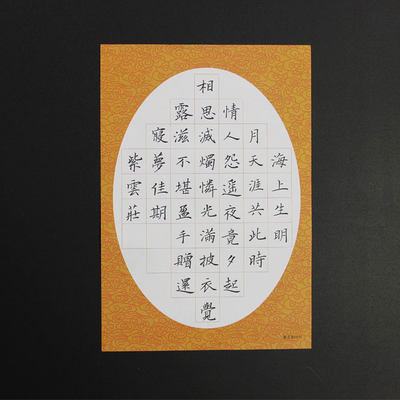 海上生明
月天涯共此時
情人怨遥夜竟夕起
相思滅燭憐光滿披衣覺
露滋不堪盈手贈還
寢夢佳期
紫雲莊